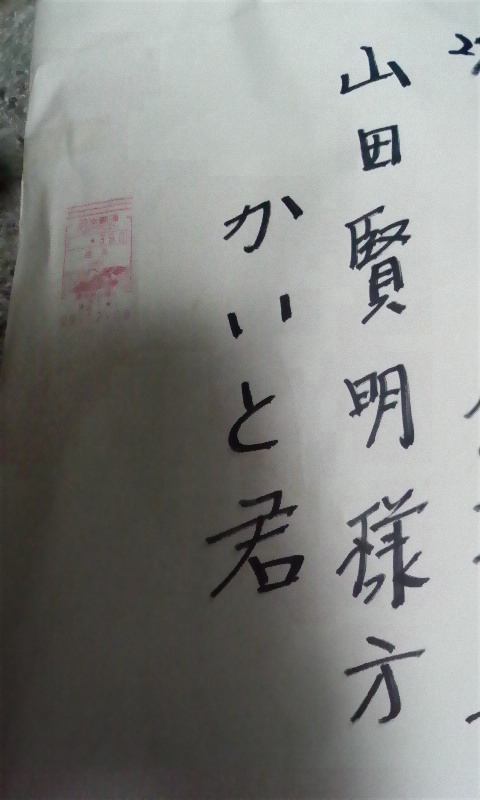 山田賢明様方
かいと君